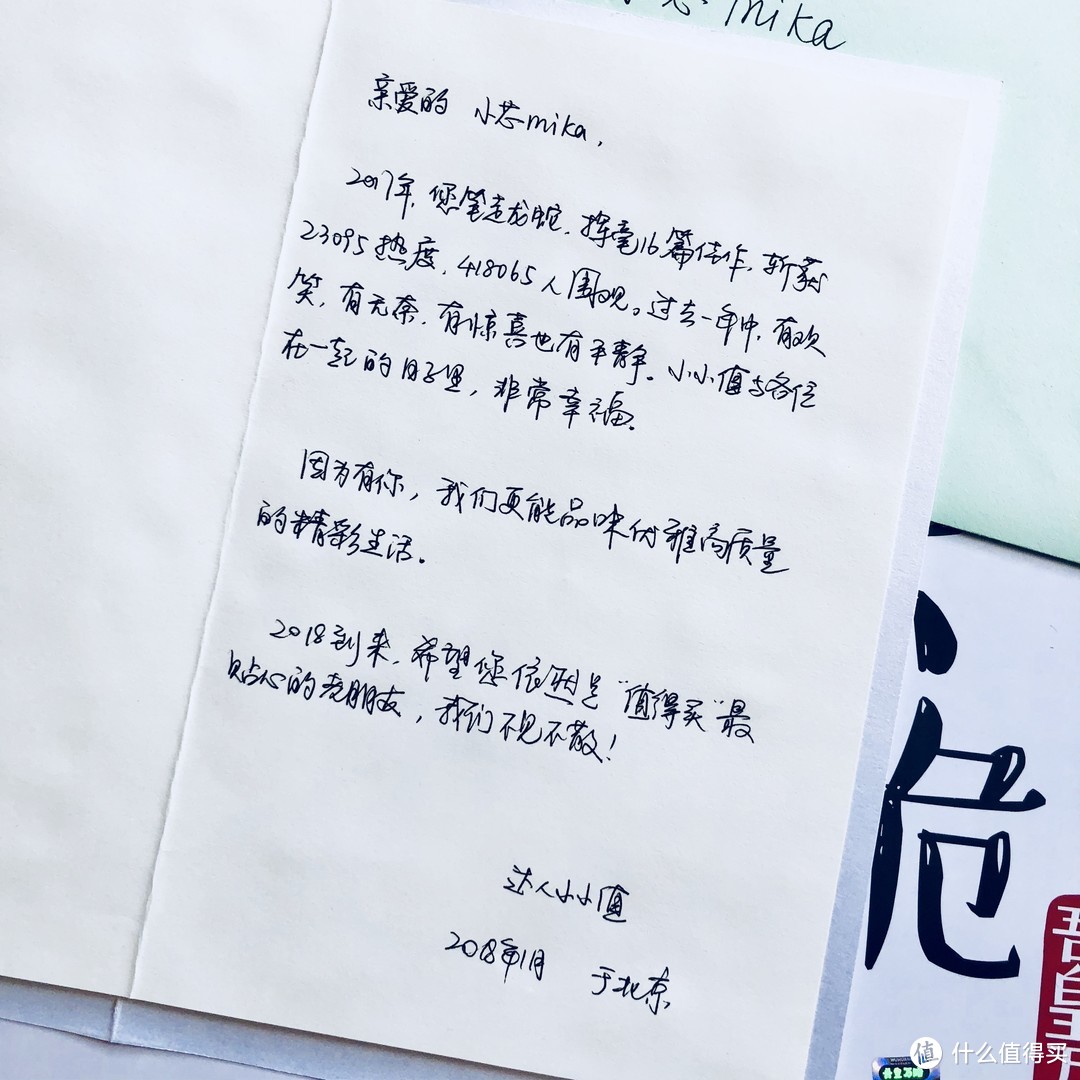 mika
亲爱的 小芯mika,
2017年,您笔走龙蛇,挥毫16篇佳作,斩获
23095热度,418065人围观。过去一年中,有欢
笑,有无奈,有惊喜也有平静。小小值与各位
在一起的日子里,非常幸福。
因为有你,我们更能品味优雅高质量
的精彩生活。
2018到来,希望您依然是“值得买”最
贴心的老朋友,我们不见不散!
达人小小值
2018年1月 于北京
危
吾皇万
值 什么值得买